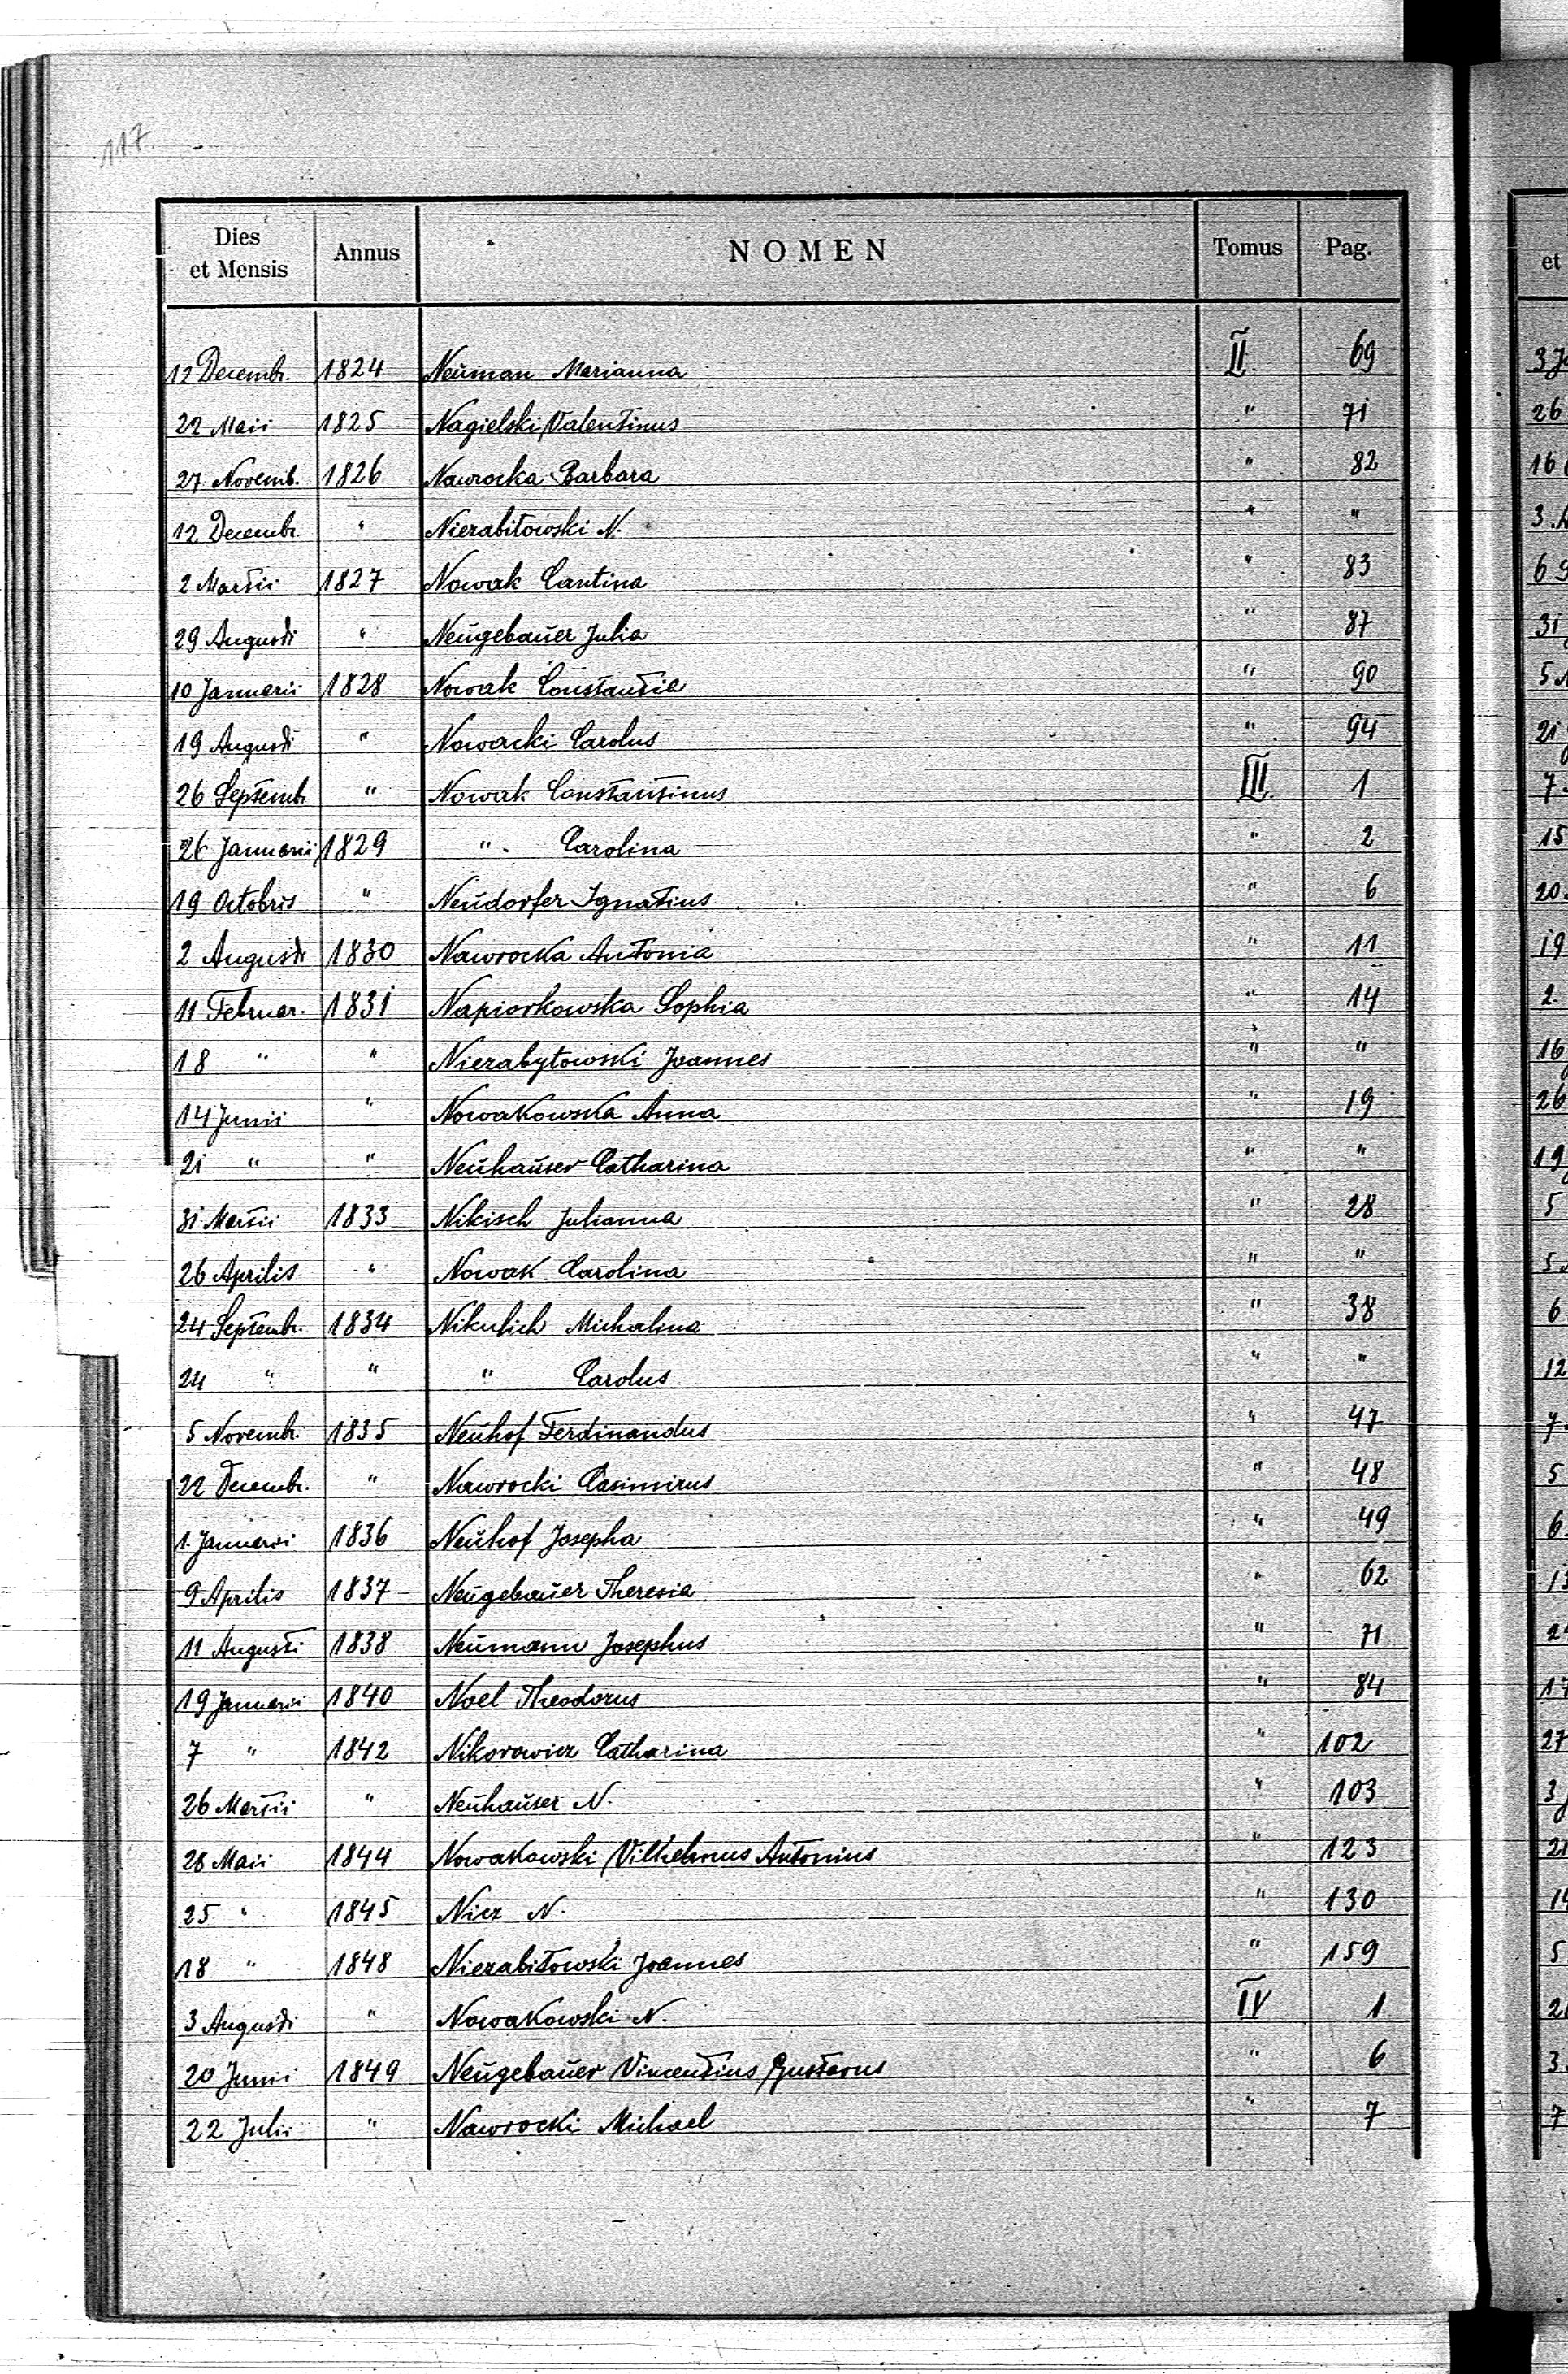 117
Dies et Mensis Annus NOMEN Tomus Pag.
12 Decembr. 1824 Neŭman Marianna II 69
22 Maii 1825 Nagielski Valentinus " 71
27 Novemb. 1826 Nawrocka Barbara " 82
12 Decembr. " Nierabitowski N. " "
2 Martii 1827 Nowak Cantina " 83
29 Augusti " Neŭgebaŭer Julia " 87
10 Januarii 1828 Nowak Constantia " 90
19 Augusti " Nowacki Carolus " 94
26 Septemb. " Nowak Constantinus III 1
26 Januarii 1829 " Carolina " 2
19 Octobris " Neŭdorfer Ignatius " 6
2 Augusti 1830 Nawrocka Antonia " 11
11 Februar. 1831 Napiorkowska Sophia " 14
18 " " Nierabytowski Joannes " "
14 Junii " Nowakowska Anna " 19
21 " " Neŭhaŭser Catharina " "
31 Martii 1833 Nikisch Julianna " 28
26 Aprilis " Nowak Carolina " "
24 Septembr. 1834 Nikulich Michalina " 38
24 " " " Carolus " "
5 Novembr. 1835 Neŭhof Ferdinandus " 47
22 Decembr. " Nawrocki Casimirus " 48
1 Januarii 1836 Neŭhof Josepha " 49
9 Aprilis 1837 Neŭgebaŭer Theresia " 62
11 Augusti 1838 Neŭmann Josephus " 71
19 Januarii 1840 Noel Theodorus " 84
7 " 1842 Nikorowicz Catharina " 102
26 Martii " Neŭhaŭser N. " 103
28 Maii 1844 Nowakowski Vilhelmus Antonius " 123
25 " 1845 Nicz N. " 130
18 " 1848 Nierabitowski Joannes " 159
3 Augusti " Nowakowski N. IV 1
20 Junii 1849 Neŭgebaŭer Vincentius Gustavus " 6
22 Julii " Nawrocki Michael " 7